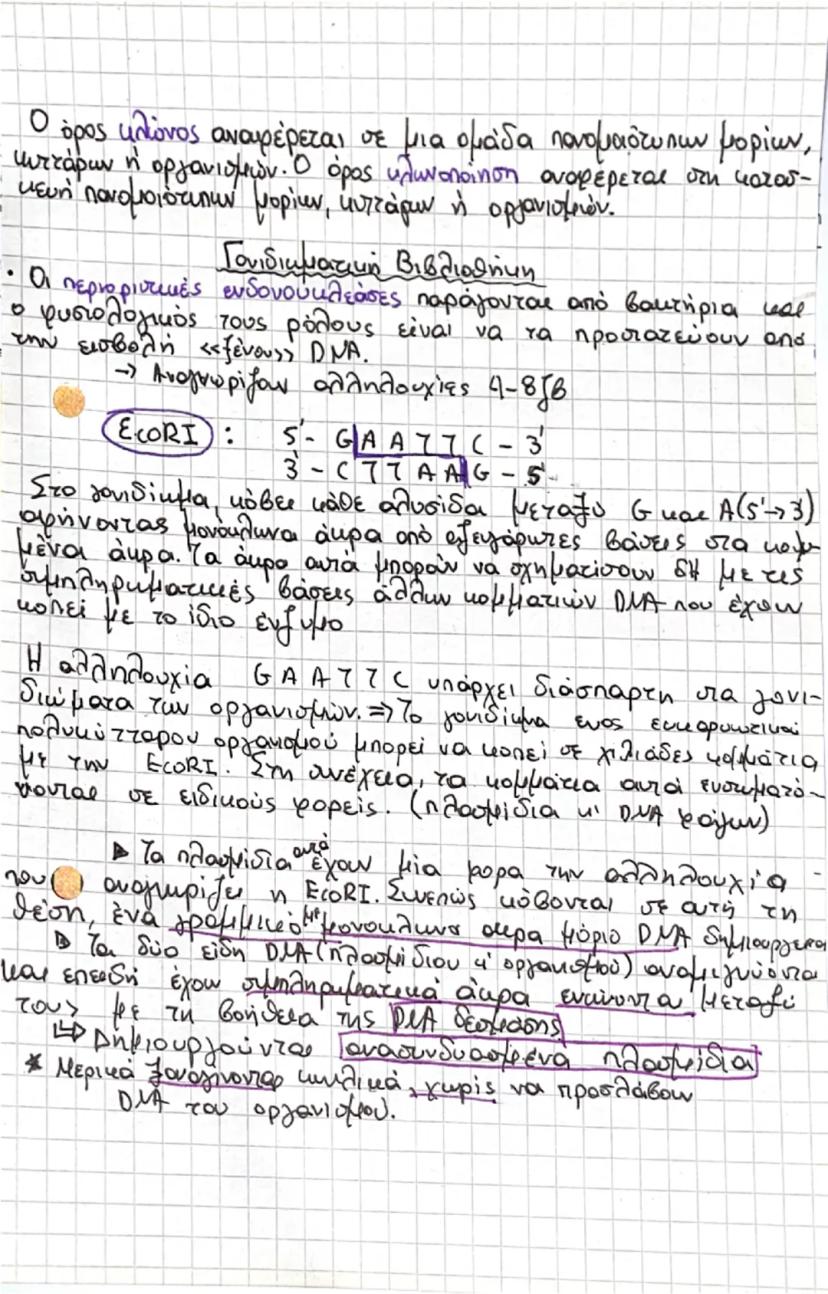 Ο όρος κλώνος αναφέρεται σε μια ομάδα πανομοιότυπων μορίων,
κυττάρων ή οργανισμών. Ο όρος κλωνοποίηση αναφέρεται στη κατασ-
κευή πανομοιότυπων μορίων, κυττάρων ή οργανισμών.
Γονιδιωματική Βιβλιοθήκη
• Οι περιοριστικές ενδονουκλεάσες παράγονται από βακτήρια και
ο φυσιολογικός τους ρόλους είναι να τα προστατεύουν από
την εισβολή «ξένου» DNA.
→ Αναγνωρίζουν αλληλουχίες 4-8ζβ
EcoRI : 5'- G A A T T C - 3'
3'- C T T A A G - 5'
Στο γονιδίωμα, κόβει κάθε αλυσίδα μεταξύ G και A (5'→3')
αφήνοντας μονόκλωνα άκρα από αζευγάρωτες βάσεις στα κομ-
μένα άκρα. Τα άκρα αυτά μπορούν να σχηματίσουν δΗ με τις
συμπληρωματικές βάσεις άλλων κομματιών DNA που έχουν
κοπεί με το ίδιο ένζυμο
Η αλληλουχία G A A T T C υπάρχει διάσπαρτη στα γονι-
διώματα των οργανισμών. ⇒ Το γονιδίωμα ενος ευκαρυωτικού
πολυκύτταρου οργανισμού μπορεί να κοπεί σε χιλιάδες κομμάτια
με την EcoRI. Στη συνέχεια, τα κομμάτια αυτά ενσωματώ-
νονται σε ειδικούς φορείς. (πλασμίδια κ' DNA φάγων)
▶ Τα πλασμίδια αυτά έχουν μία φορα την αλληλουχία
που αναγνωρίζει η EcoRI. Συνεπώς κόβονται σε αυτή τη
θέση, ένα γραμμικό με μονοκλωνα ακρα μόριο DNA δημιουργειται
▷ Τα δύο είδη DNA (πλασμιδίου κ' οργανισμού) αναμιγνύονται
και επειδή έχουν συμπληρωματικά άκρα ενώνονται μεταξύ
τους με τη βοήθεια της DNA δεσμάσης
↳ Δημιουργούνται ανασυνδυασμένα πλασμίδια
* Μερικά ξαναγίνονται κυκλικά, χωρίς να προσλάβουν
DNA του οργανισμού.